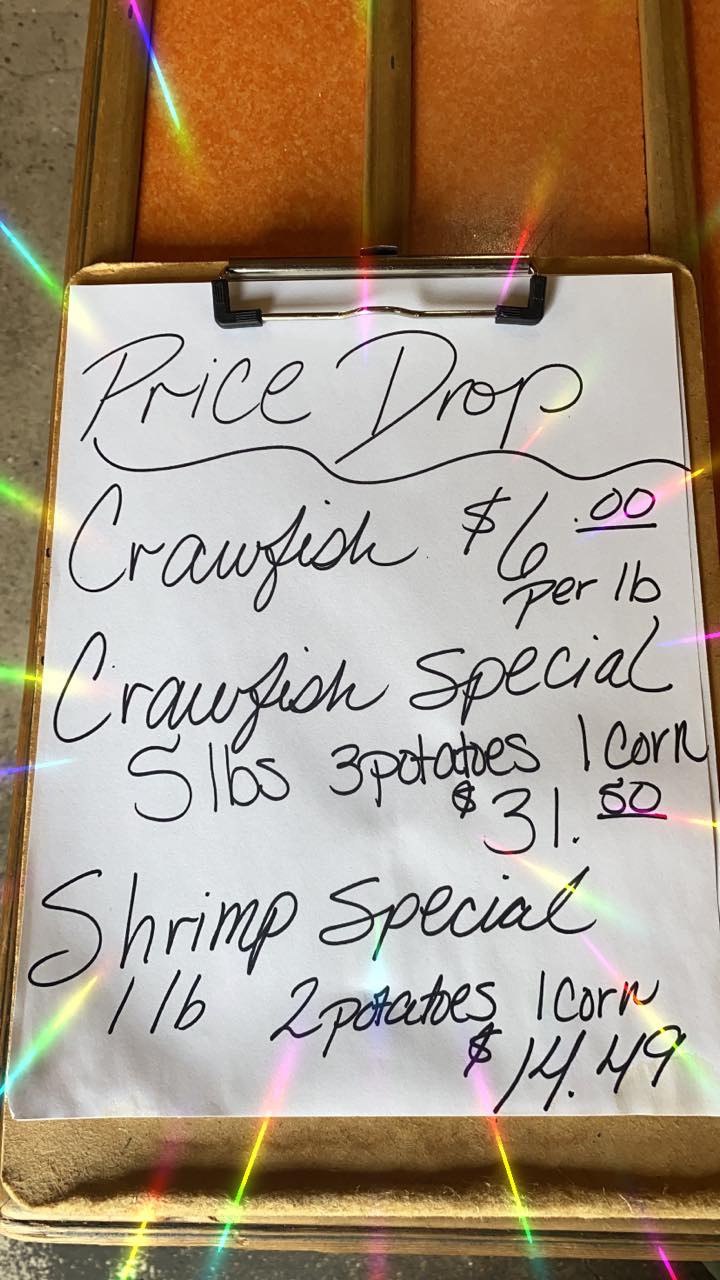 Price Drop
Crawfish $6.00
per lb
Crawfish Special
5 lbs 3 potatoes 1 Corn
$31.50
Shrimp Special
1 lb 2 potatoes 1 Corn
$14.49